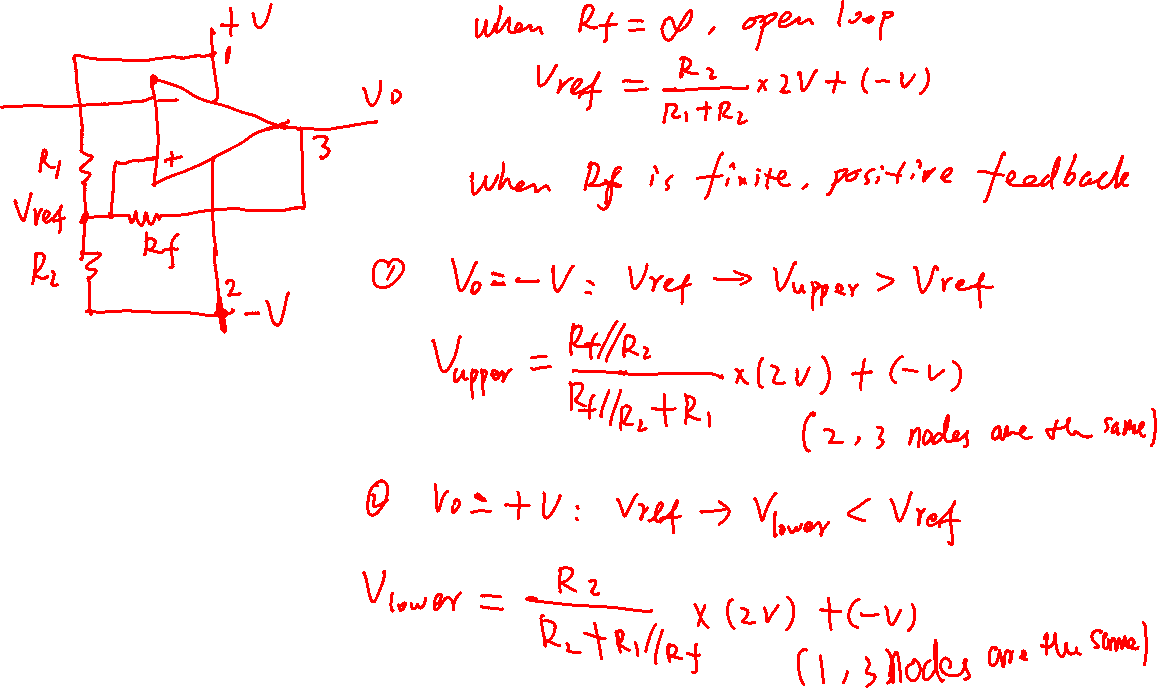 +V
1
V0
3
R1
+
Vref
Rf
R2
2
-V
when Rf = ∞, open loop
Vref = R2 / (R1+R2) × 2V + (-V)
when Rf is finite, positive feedback
① Vo = -V : Vref → Vupper > Vref
Vupper = Rf//R2 / (Rf//R2 + R1) × (2V) + (-V)
(2, 3 nodes are the same)
② Vo = +V : Vref → Vlower < Vref
Vlower = R2 / (R2 + R1//Rf) × (2V) + (-V)
(1, 3 nodes are the same)